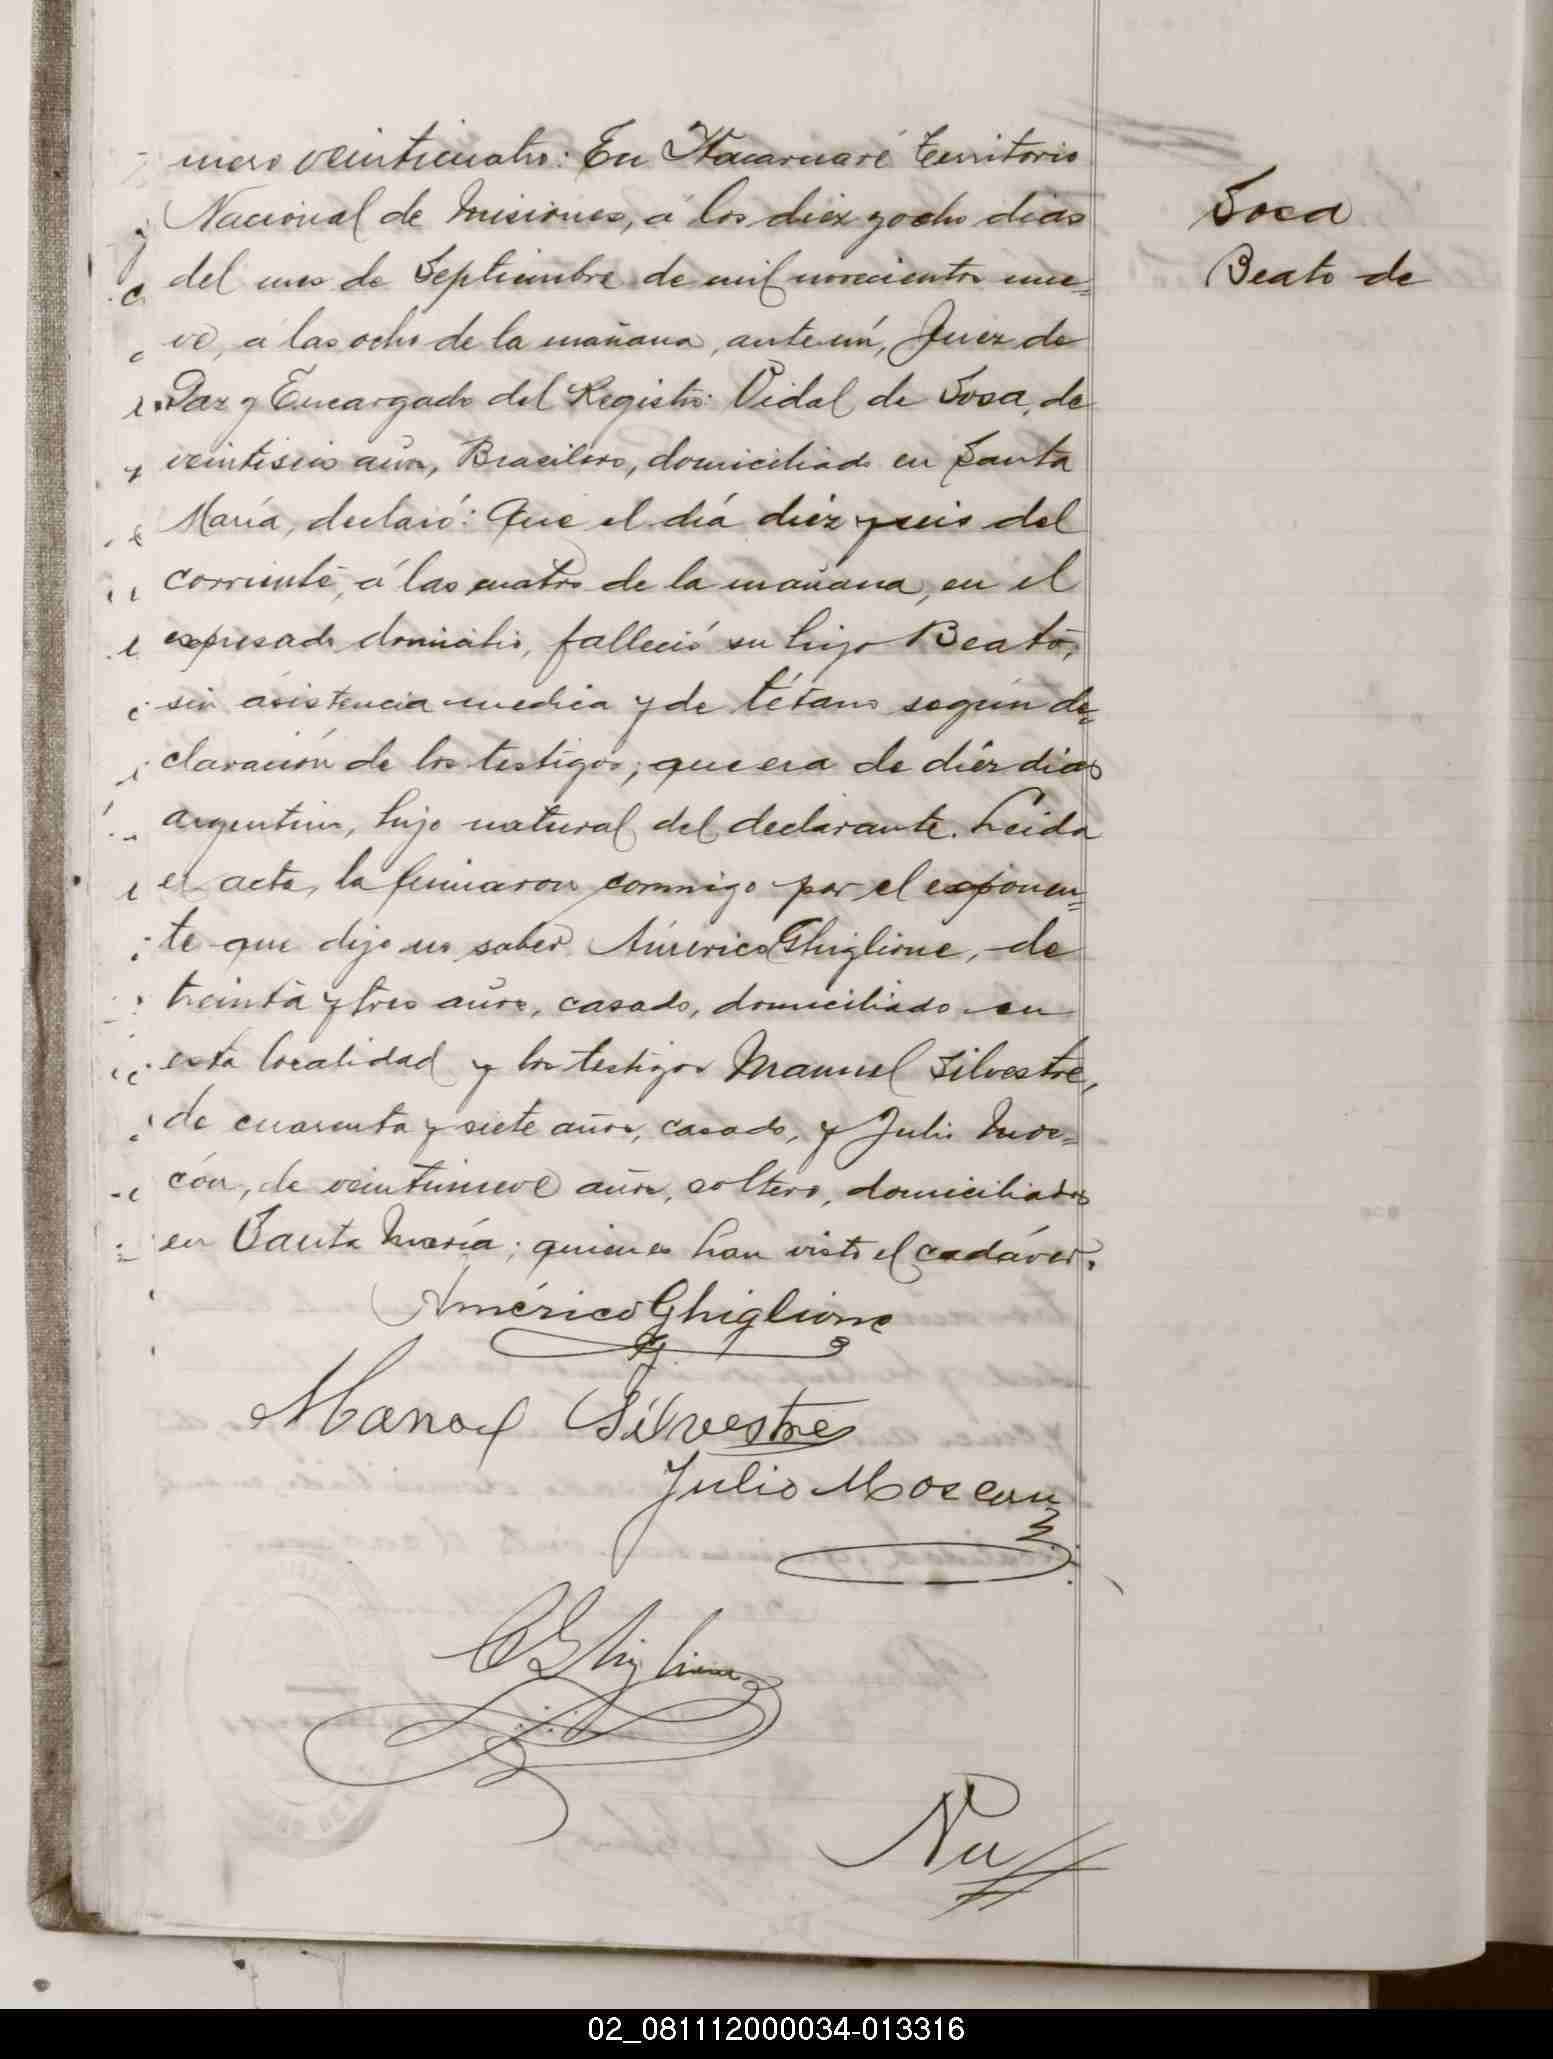 mero veinticuatro: En Itacaruaré Territorio
Nacional de Misiones, á los diez y ocho dias
del mes de Septiembre de mil novecientos nue=
ve, á las ocho de la mañana, ante mí, Juez de
Paz y Encargado del Registro: Vidal de Sosa, de
veintiseis años, Brasilero, domiciliado en Santa
María, declaró: Que el día diéz y seis del
corriente, á las cuatro de la mañana, en el
expresado domicilio, falleció su hijo Beato,
sin asistencia medica y de tétano según de=
claración de los testigos; que era de diéz dias
argentino, hijo natural del declarante. Leida
el acta, la firmaron conmigo por el exponen=
te que dijo no saber Américo Ghiglione, de
treinta y tres años, casado, domiciliado en
esta localidad y los testigos Manuel Silvestre,
de cuarenta y siete años, casado, y Julio Mos=
cón, de veintinueve años, soltero, domiciliados
en Santa María; quienes han visto el cadáver.
Américo Ghiglione
Manoel Silvestre
Julio Moscon
Ghiglione
Nu
Sosa
Beato de
02_081112000034-013316